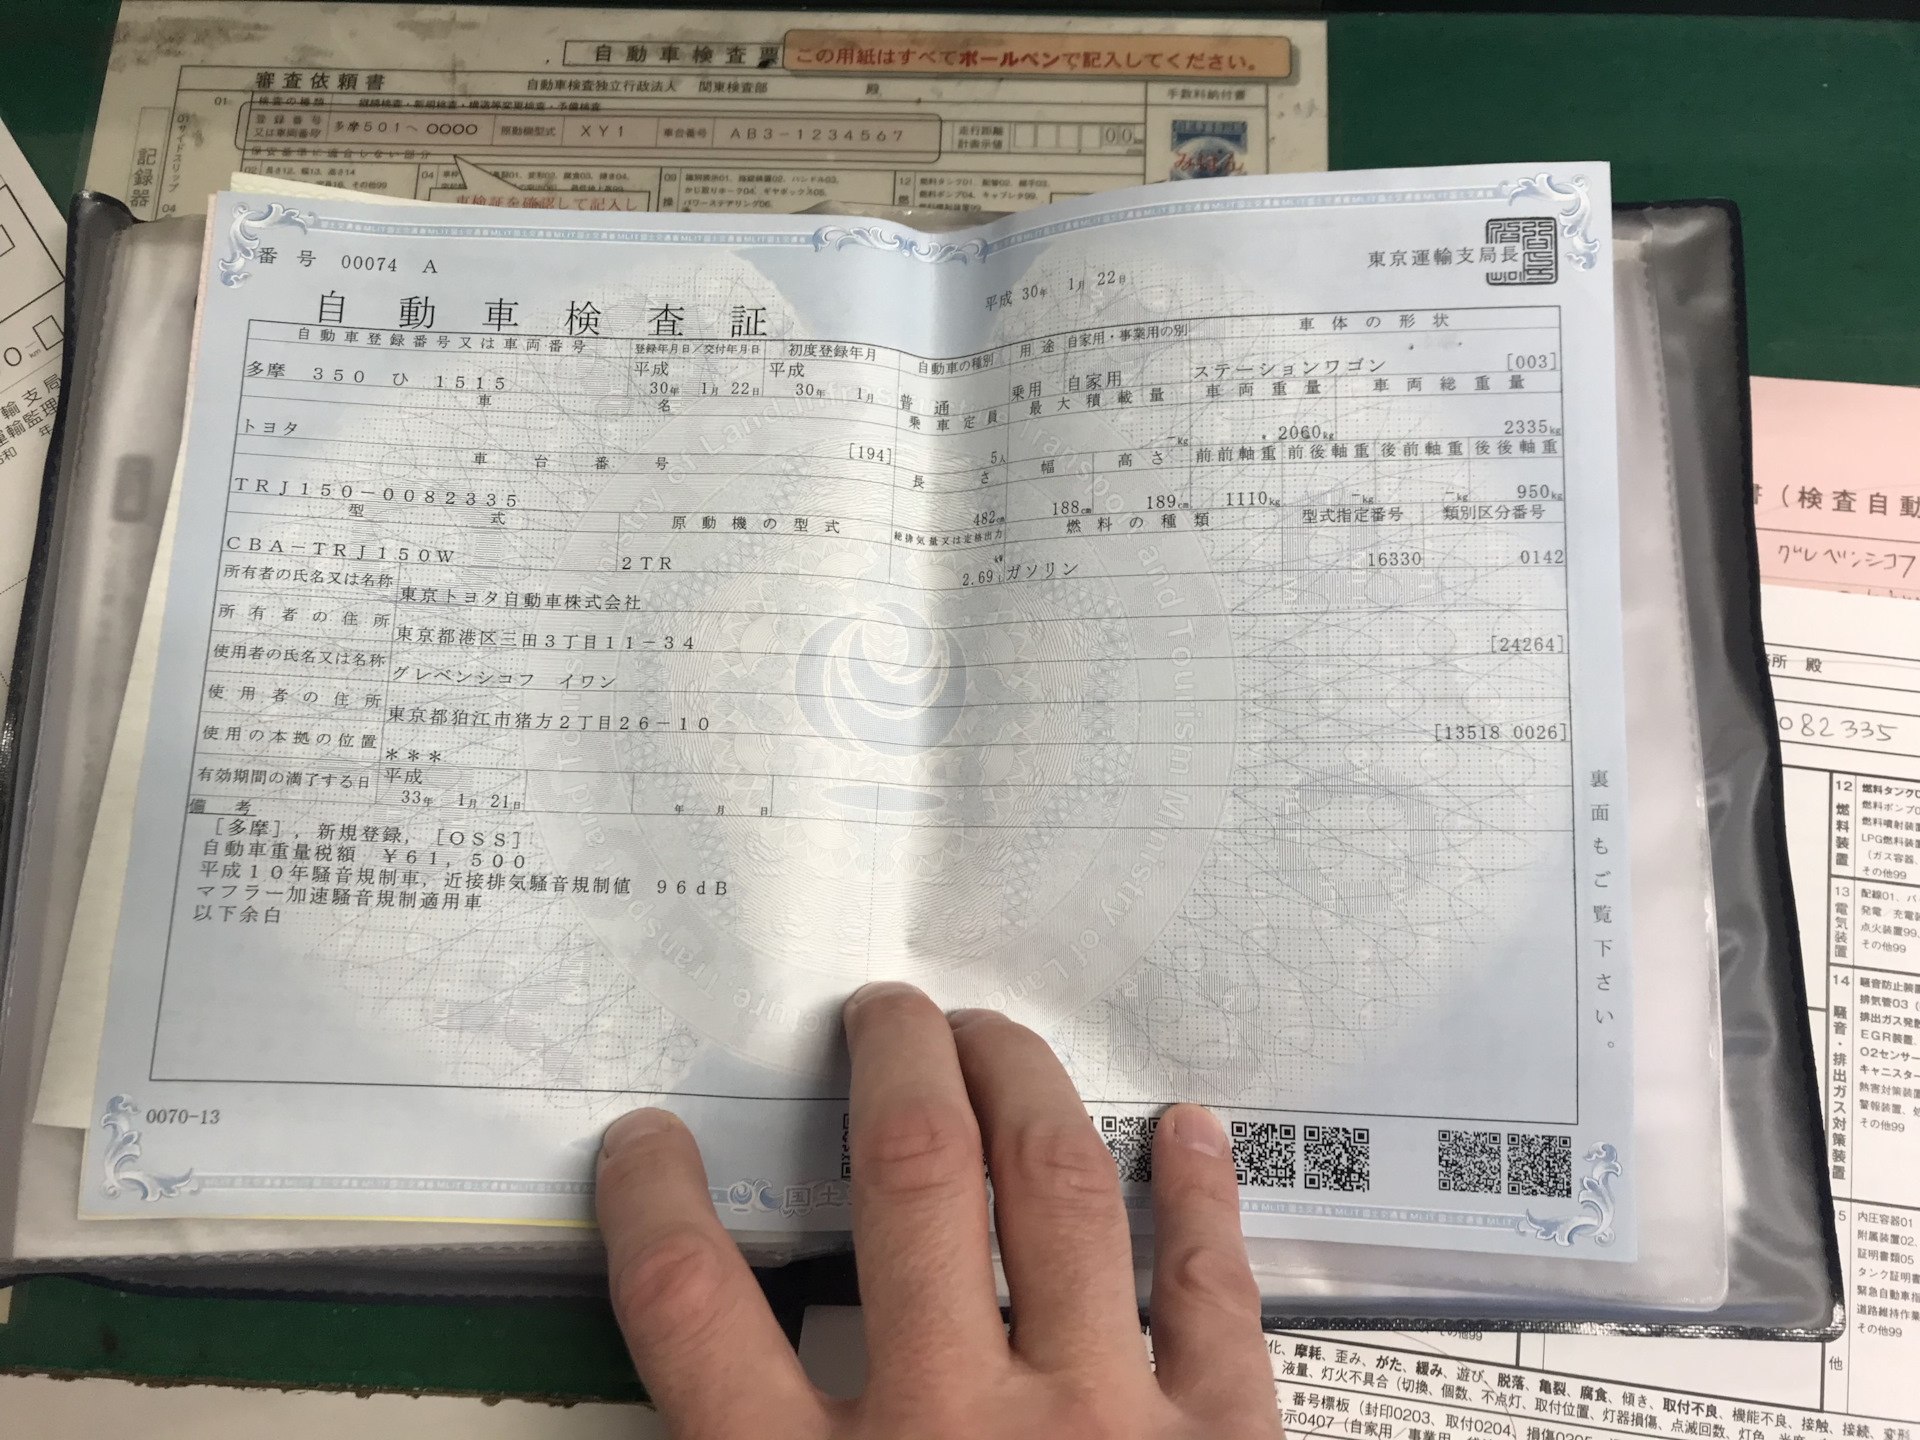 自動車検査票
この用紙はすべてボールペンで記入してください。
審査依頼書
自動車検査独立行政法人 関東検査部 殿
手数料納付書
01 検査の種類 継続検査・新規検査・構造等変更検査・予備検査
登録番号又は車両番号 多摩501へ0000 原動機型式 XY1 車台番号 AB3-1234567
走行距離計表示値 00
保安基準に適合しない部分
記録器
サイドスリップ
車検証を確認して記入し
番号 00074 A
東京運輸支局長
自動車検査証
平成 30年 1月 22日
自動車登録番号又は車両番号 登録年月日/交付年月日 初度登録年月 自動車の種別 用途 自家用・事業用の別 車体の形状
多摩 350 ひ 1515 平成 30年 1月 22日 平成 30年 1月 普通 乗用 自家用 ステーションワゴン [003]
車名 乗車定員 最大積載量 車両重量 車両総重量
トヨタ [194] 5人 -kg 2060kg 2335kg
車台番号 長さ 幅 高さ 前前軸重 前後軸重 後前軸重 後後軸重
TRJ150-0082335 482cm 188cm 189cm 1110kg -kg -kg 950kg
型式 原動機の型式 総排気量又は定格出力 燃料の種類 型式指定番号 類別区分番号
CBA-TRJ150W 2TR kW 2.69l ガソリン 16330 0142
所有者の氏名又は名称 東京トヨタ自動車株式会社
所有者の住所 東京都港区三田3丁目11-34 [24264]
使用者の氏名又は名称 グレベンシコフ イワン
使用者の住所 東京都狛江市猪方2丁目26-10 [13518 0026]
使用の本拠の位置 ***
有効期間の満了する日 平成 33年 1月 21日 年 月 日
備考
[多摩], 新規登録, [OSS]
自動車重量税額 ¥61,500
平成10年騒音規制車, 近接排気騒音規制値 96dB
マフラー加速騒音規制適用車
以下余白
裏面もご覧下さい。
0070-13
(検査自動
グレベンシコフ
所 殿
082335
12 燃料装置
13 電気装置
配線01、バ
点火装置99、
その他99
14 騒音・排出ガス対策装置
騒音防止装置
排気管03(
排出ガス発散
EGR装置、
O2センサー
キャニスター
熱害対策装置
その他99
内圧容器01
附属装置02、
証明書類05
タンク証明書
緊急自動車指
道路維持作業
その他99
他
化、摩耗、歪み、がた、緩み、遊び、脱落、亀裂、腐食、傾き、取付不良、機能不良、接触、接続、変形
液量、灯火不具合(切換、個数、不点灯、取付位置、灯器損傷、点滅回数、灯色
番号標板(封印0203、取付0204、損傷0205
示0407(自家用/事業用